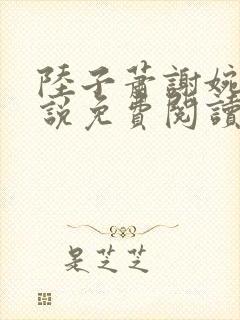 陸子蕭謝婉
說免費閱讀
是芝芝